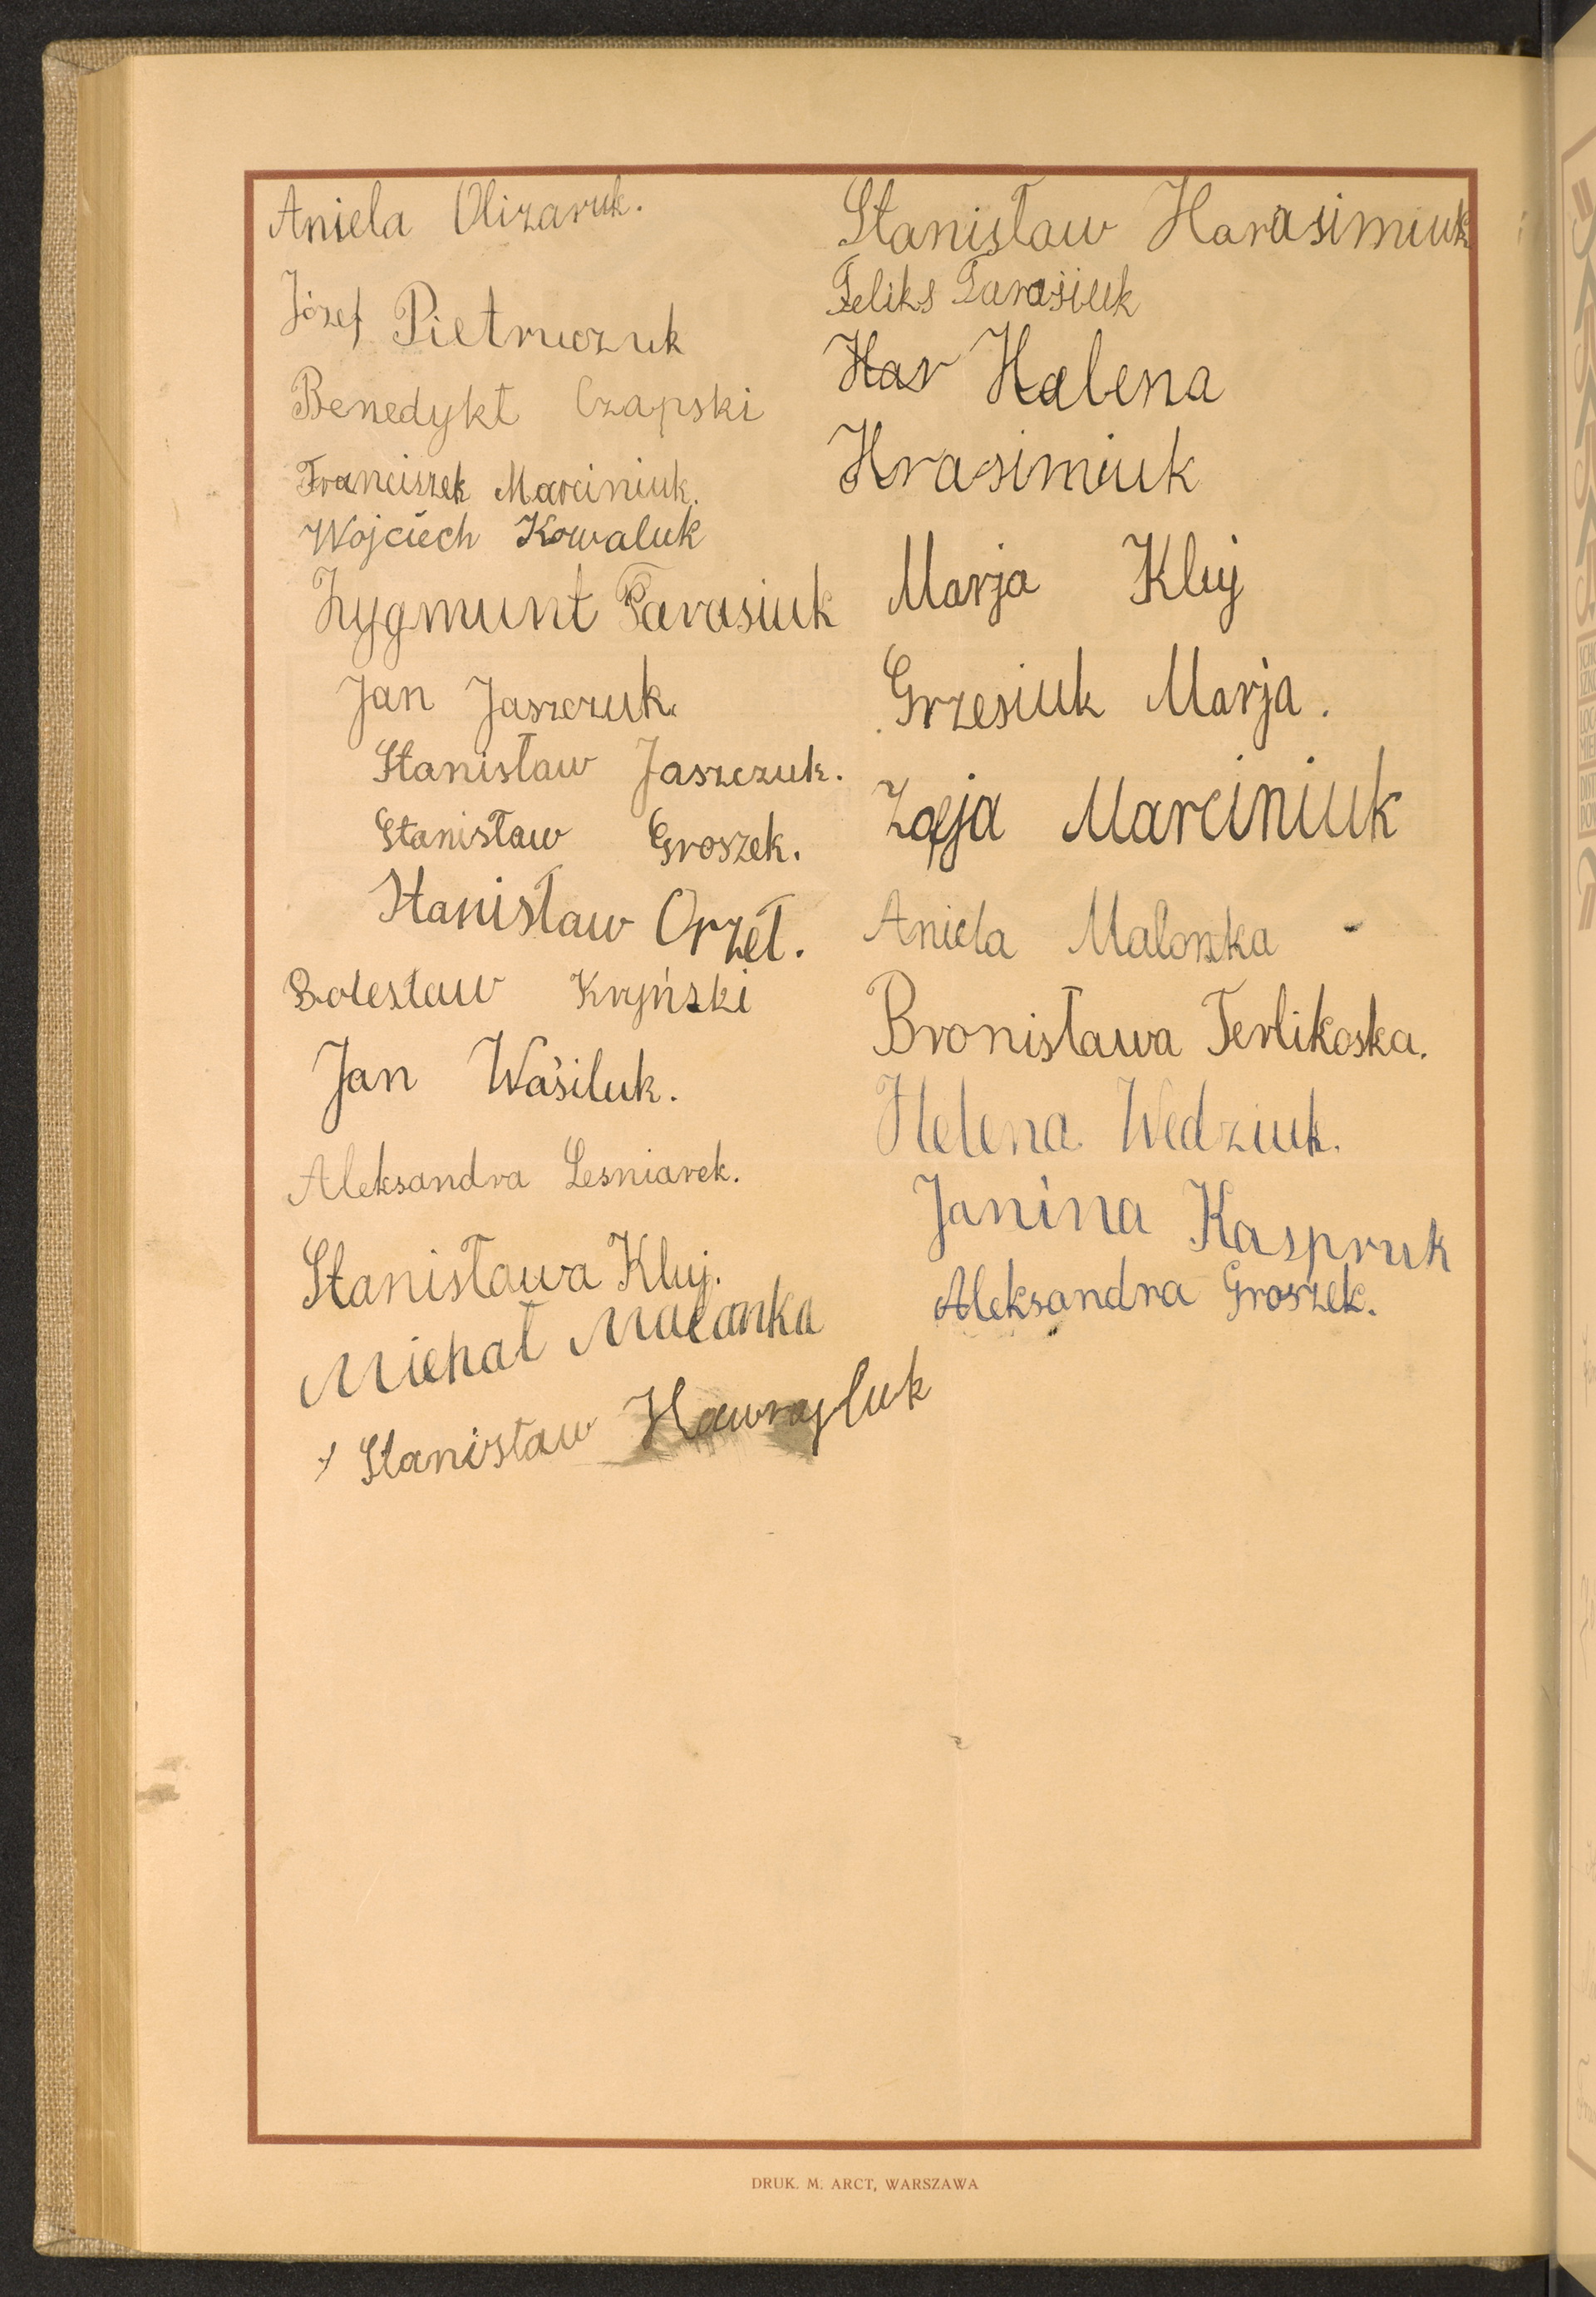 Aniela Olizaruk.
Józef Pietruczuk
Benedykt Czapski
Franciszek Marciniuk.
Wojciech Kowaluk
Zygmunt Tarasiuk
Jan Jaszczuk.
Stanisław Jaszczuk.
Stanisław Groszek.
Stanisław Orzeł.
Bolesław Kryński
Jan Waśiluk.
Aleksandra Lesniarek.
Stanisława Kluj.
Michał Malanka
Stanisław Hawryluk
Stanisław Harasimiuk
Feliks Tarasiuk
Har Halena
Hrasimiuk
Marja Kluj
Grzesiuk Marja.
Zofja Marciniuk
Aniela
Bronisława Terlikoska.
Helena Wedziuk.
Janina Kaspruk
Aleksandra Groszek.
DRUK. M. ARCT, WARSZAWA